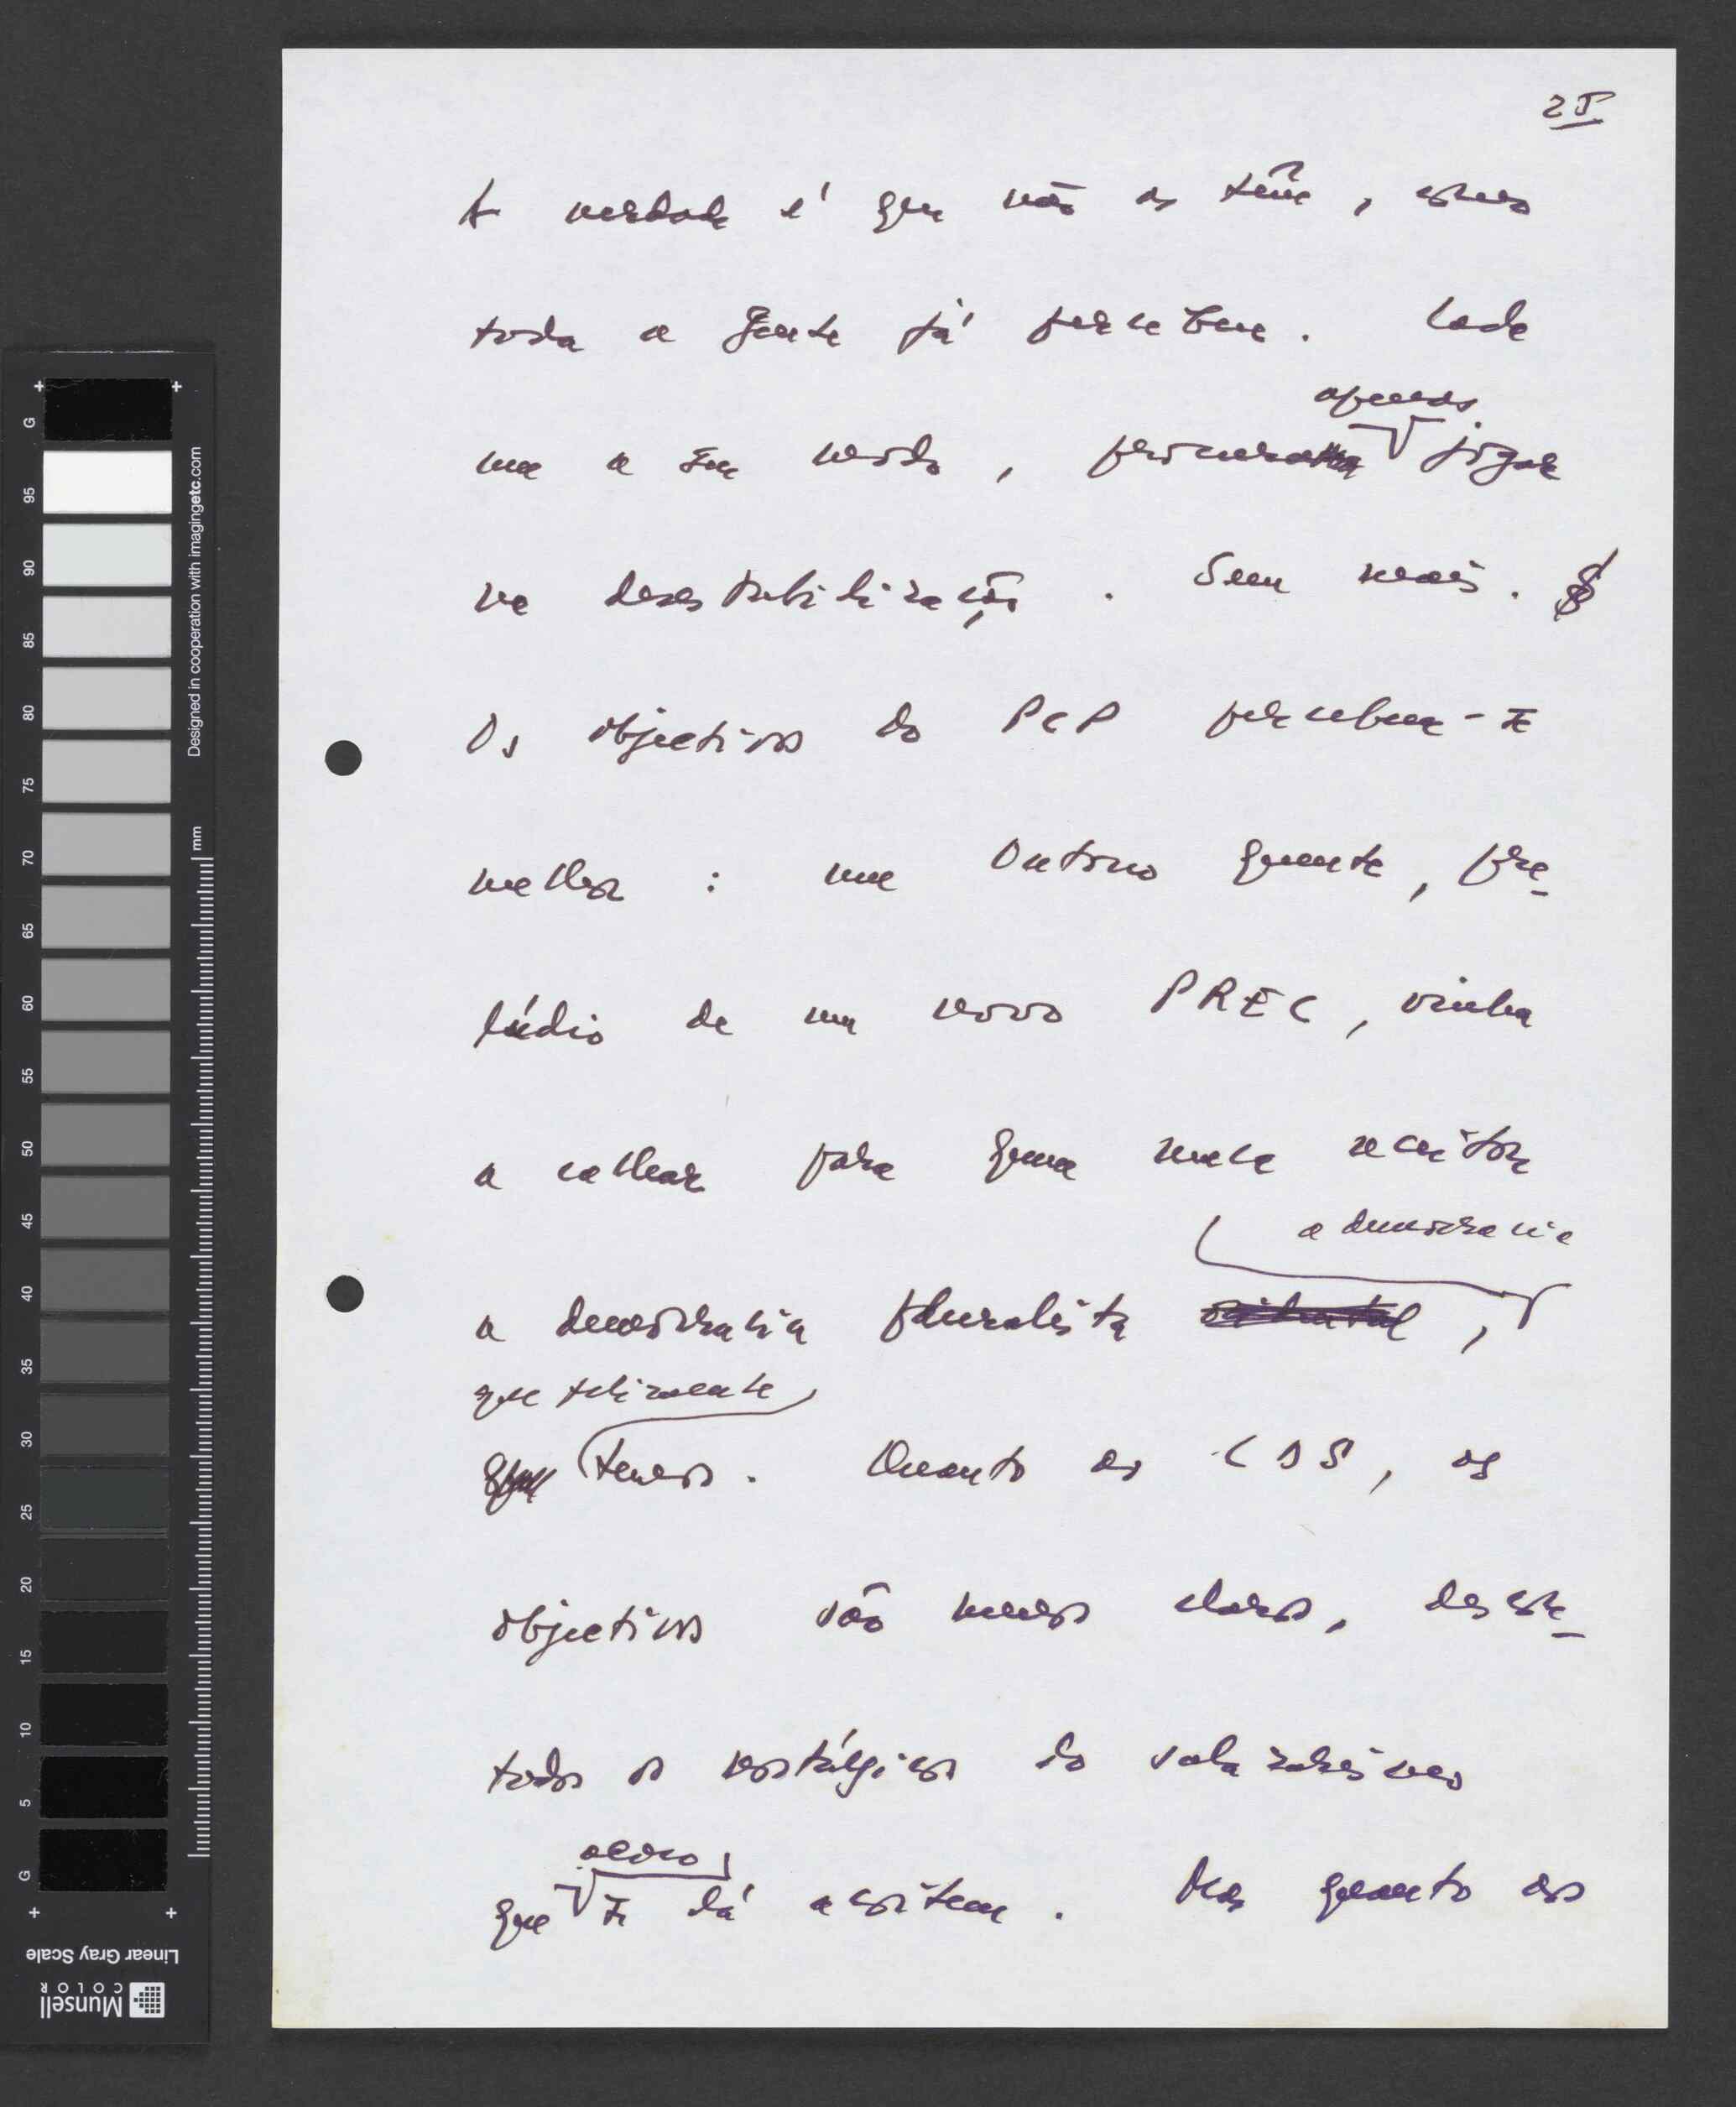 25
A verdade é que não os têm, como
toda a gente já percebeu. Cada
apenas
um a seu modo, procura jogar
na desestabilização. Sem mais. §
Os objectivos do PCP percebem-se
melhor: um Outono quente, pre-
lúdio de um novo PREC, vinha
a calhar para quem nunca aceitou
a democracia
a democracia pluralista ocidental,
que felizmente
que temos. Quanto ao CDS, os
objectivos são menos claros, descon-
tados os nostálgicos do salazarismo
ainda
que se lá acoitem. Mas quanto aos
G 95 90 85 80 75 70 65 60 55 50 45 40 35 30 25 20 15 10 5 G
Designed in cooperation with imagingetc.com
mm
Linear Gray Scale
Munsell
COLOR